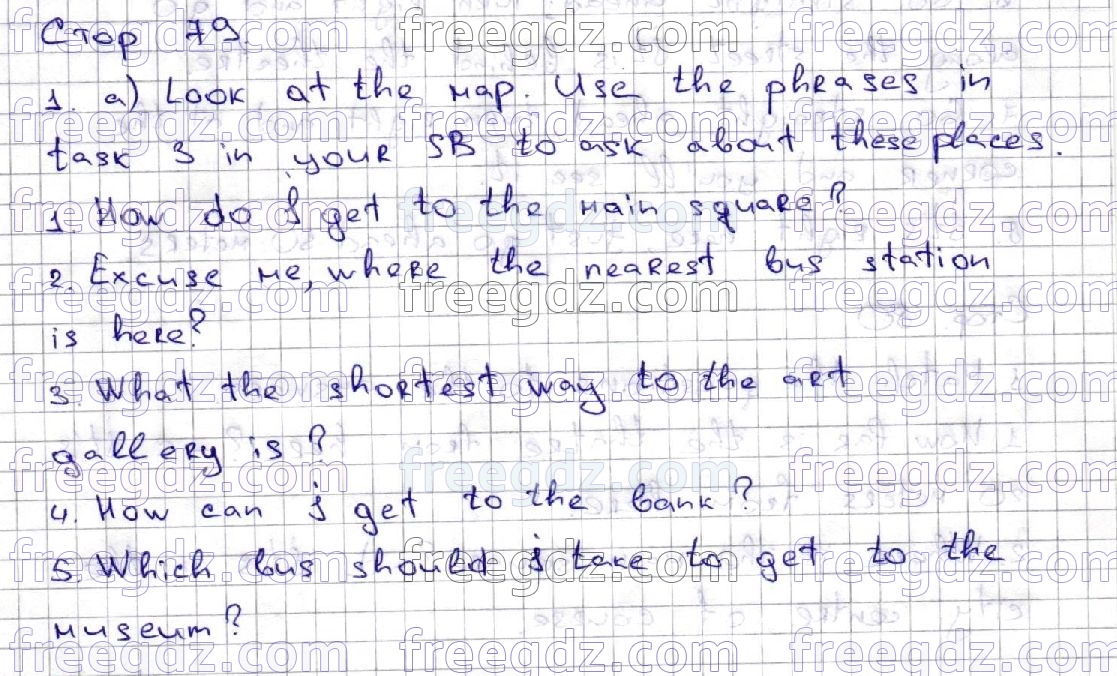 Стор 79.
1. a) Look at the map. Use the phrases in
task 3 in your SB to ask about these places.
1. How do I get to the main square?
2. Excuse me, where the nearest bus station
is here?
3. What the shortest way to the art
gallery is?
4. How can I get to the bank?
5. Which bus should I take to get to the
museum?
freegdz.com